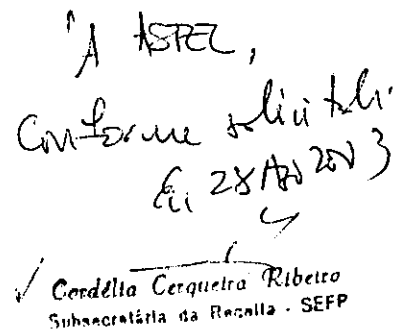 À ASTEC,
Conforme solicitado.
Em 28 Ago 2003
Cordélia Cerqueira Ribeiro
Subsecretária da Receita - SEFP